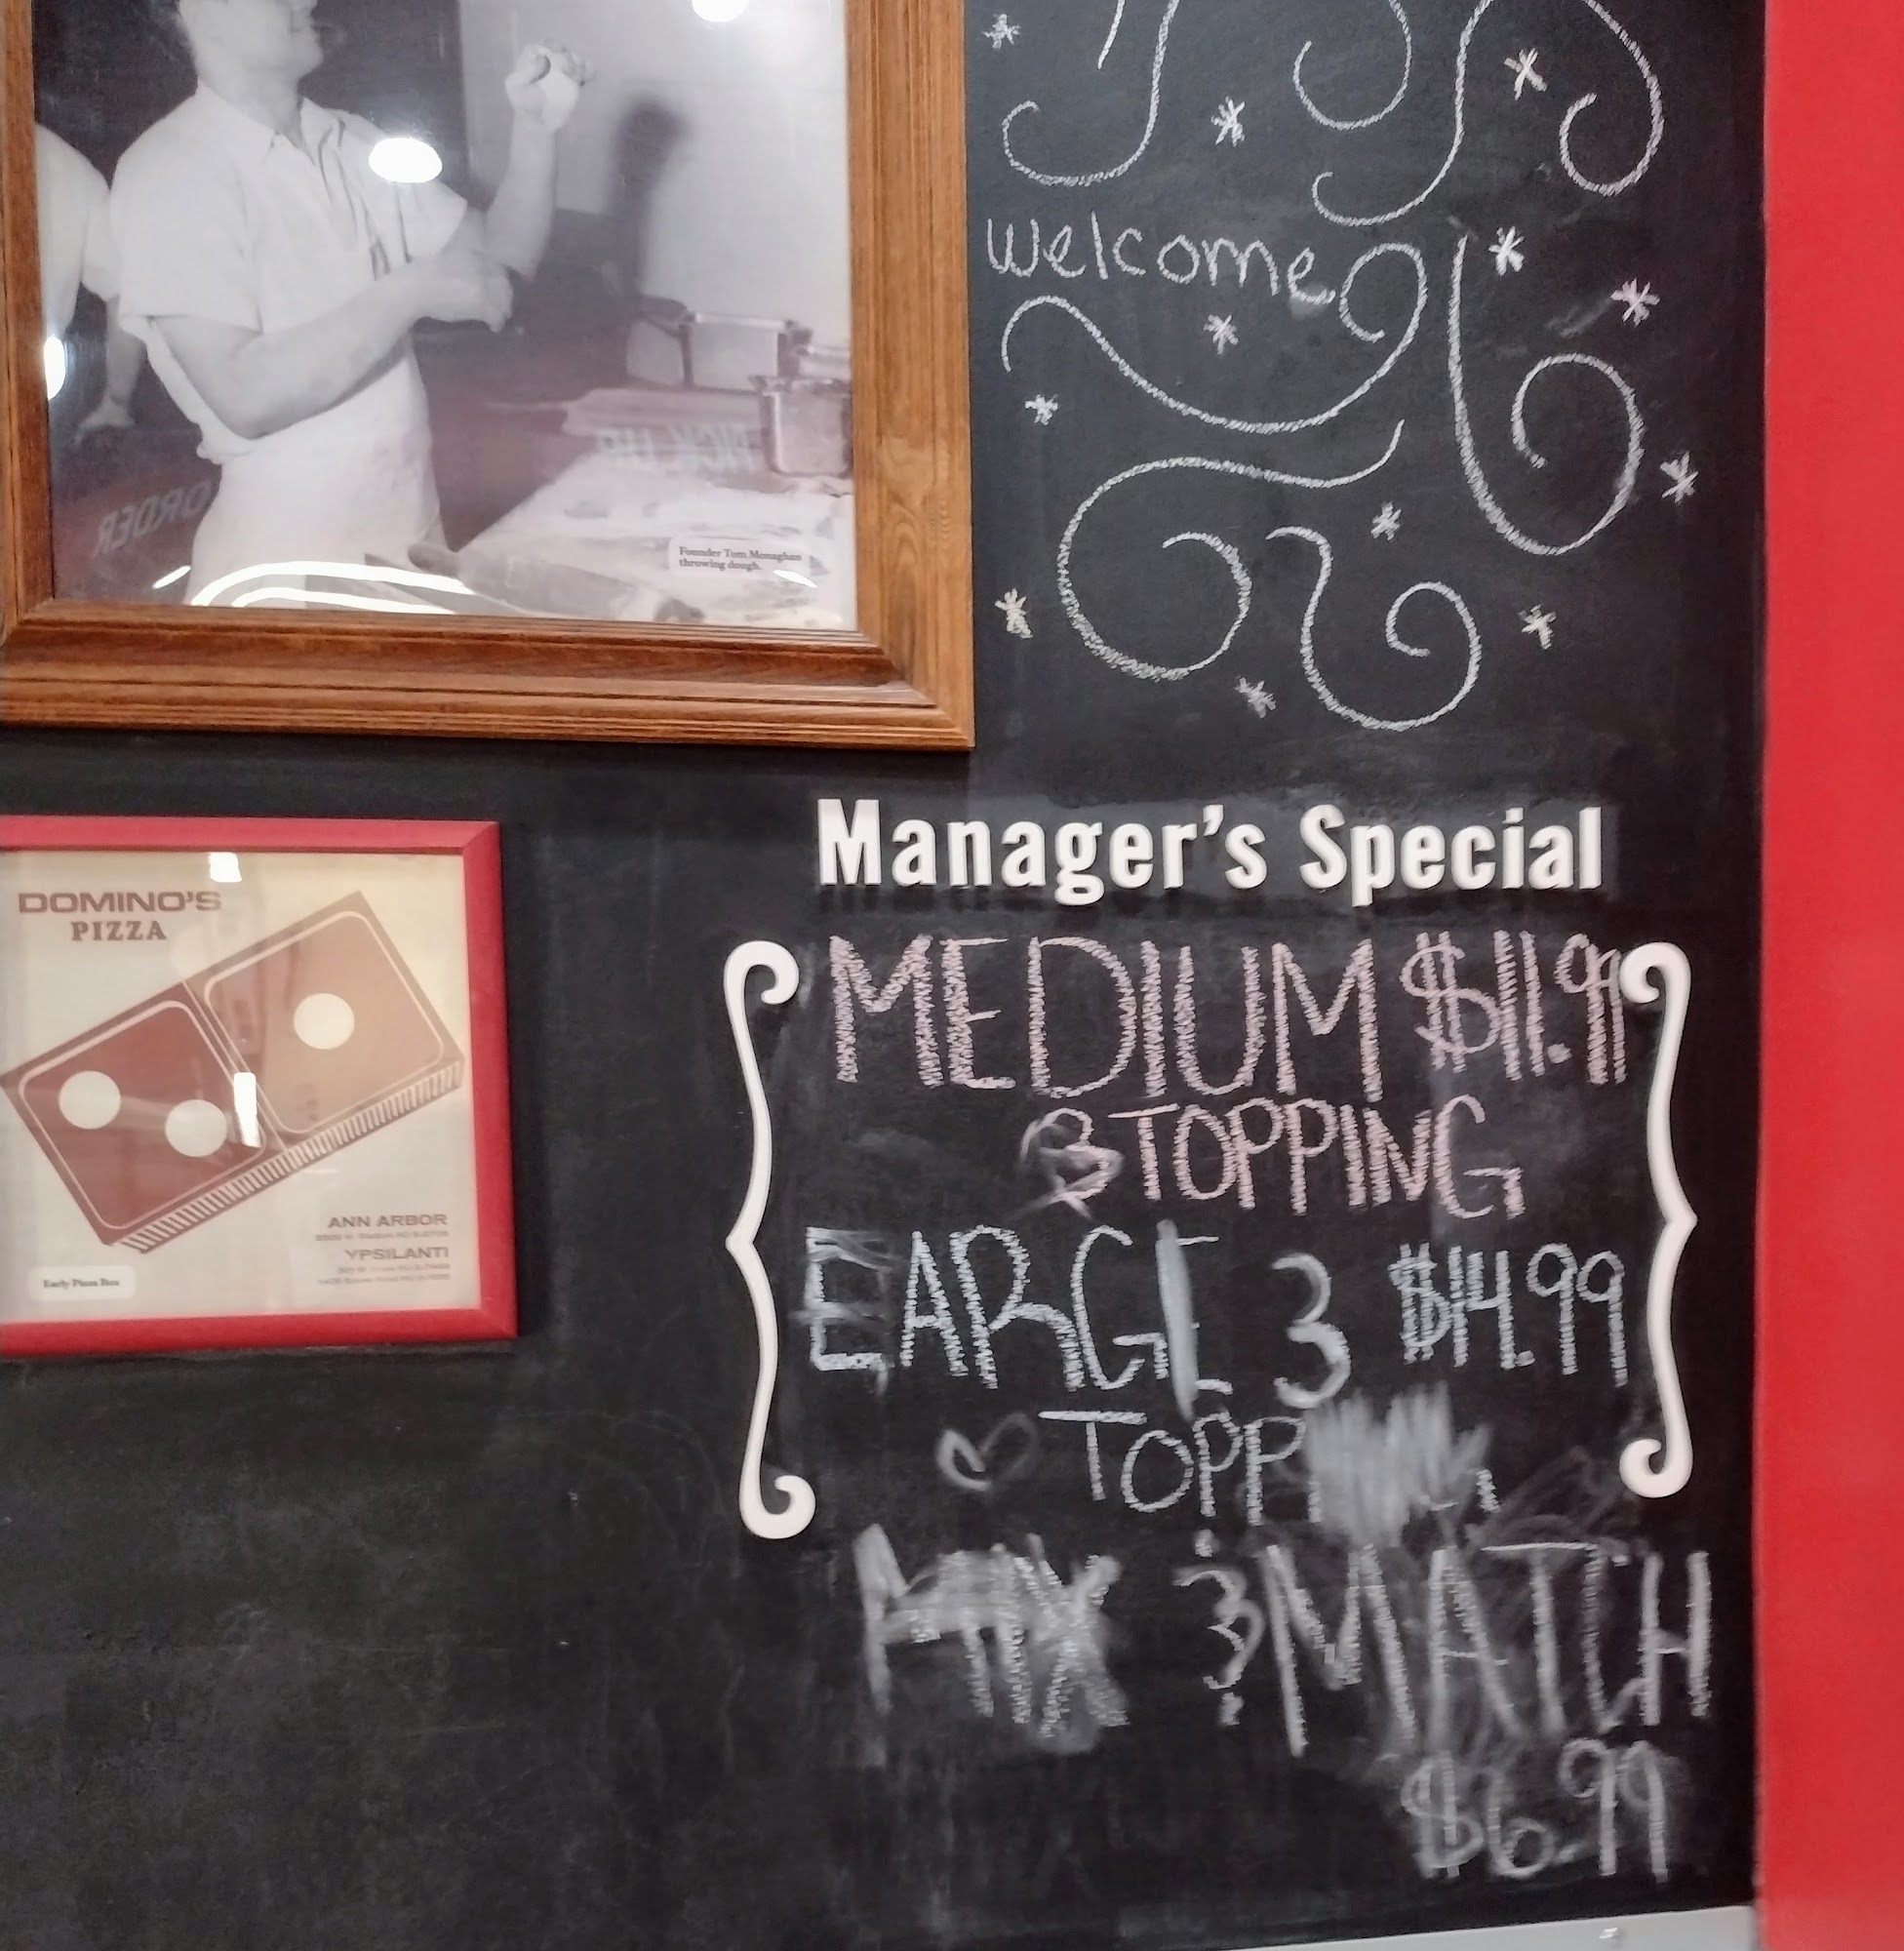 welcome
ORDER
PICK UP
Founder Tom Monaghan
throwing dough.
DOMINO'S
PIZZA
ANN ARBOR
YPSILANTI
Early Pizza Box
Manager's Special
MEDIUM $11.99
3 TOPPING
EARGE 3 $14.99
TOPP
MIX & MATCH
$6.99